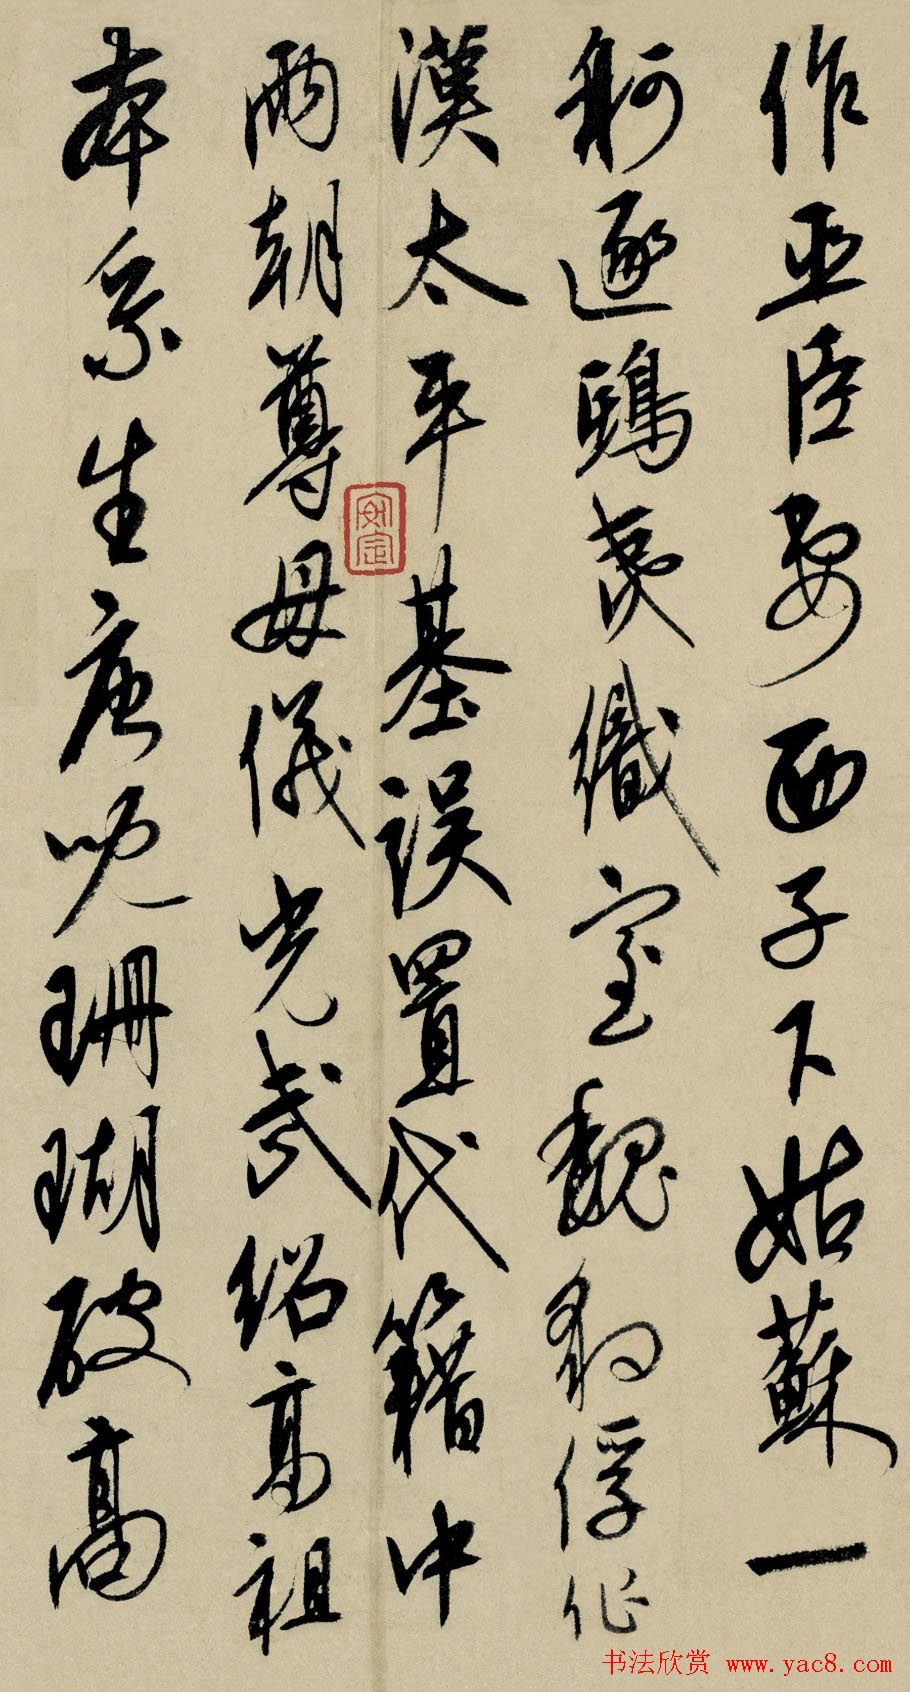 作巫臣妻西子下姑蘇一
舸逐鴟夷織室魏豹俘作
漢太平基誤置代籍中
兩朝尊母儀光武紹高祖
本系生唐兒珊瑚破高
安定
书法欣赏 www.yac8.com